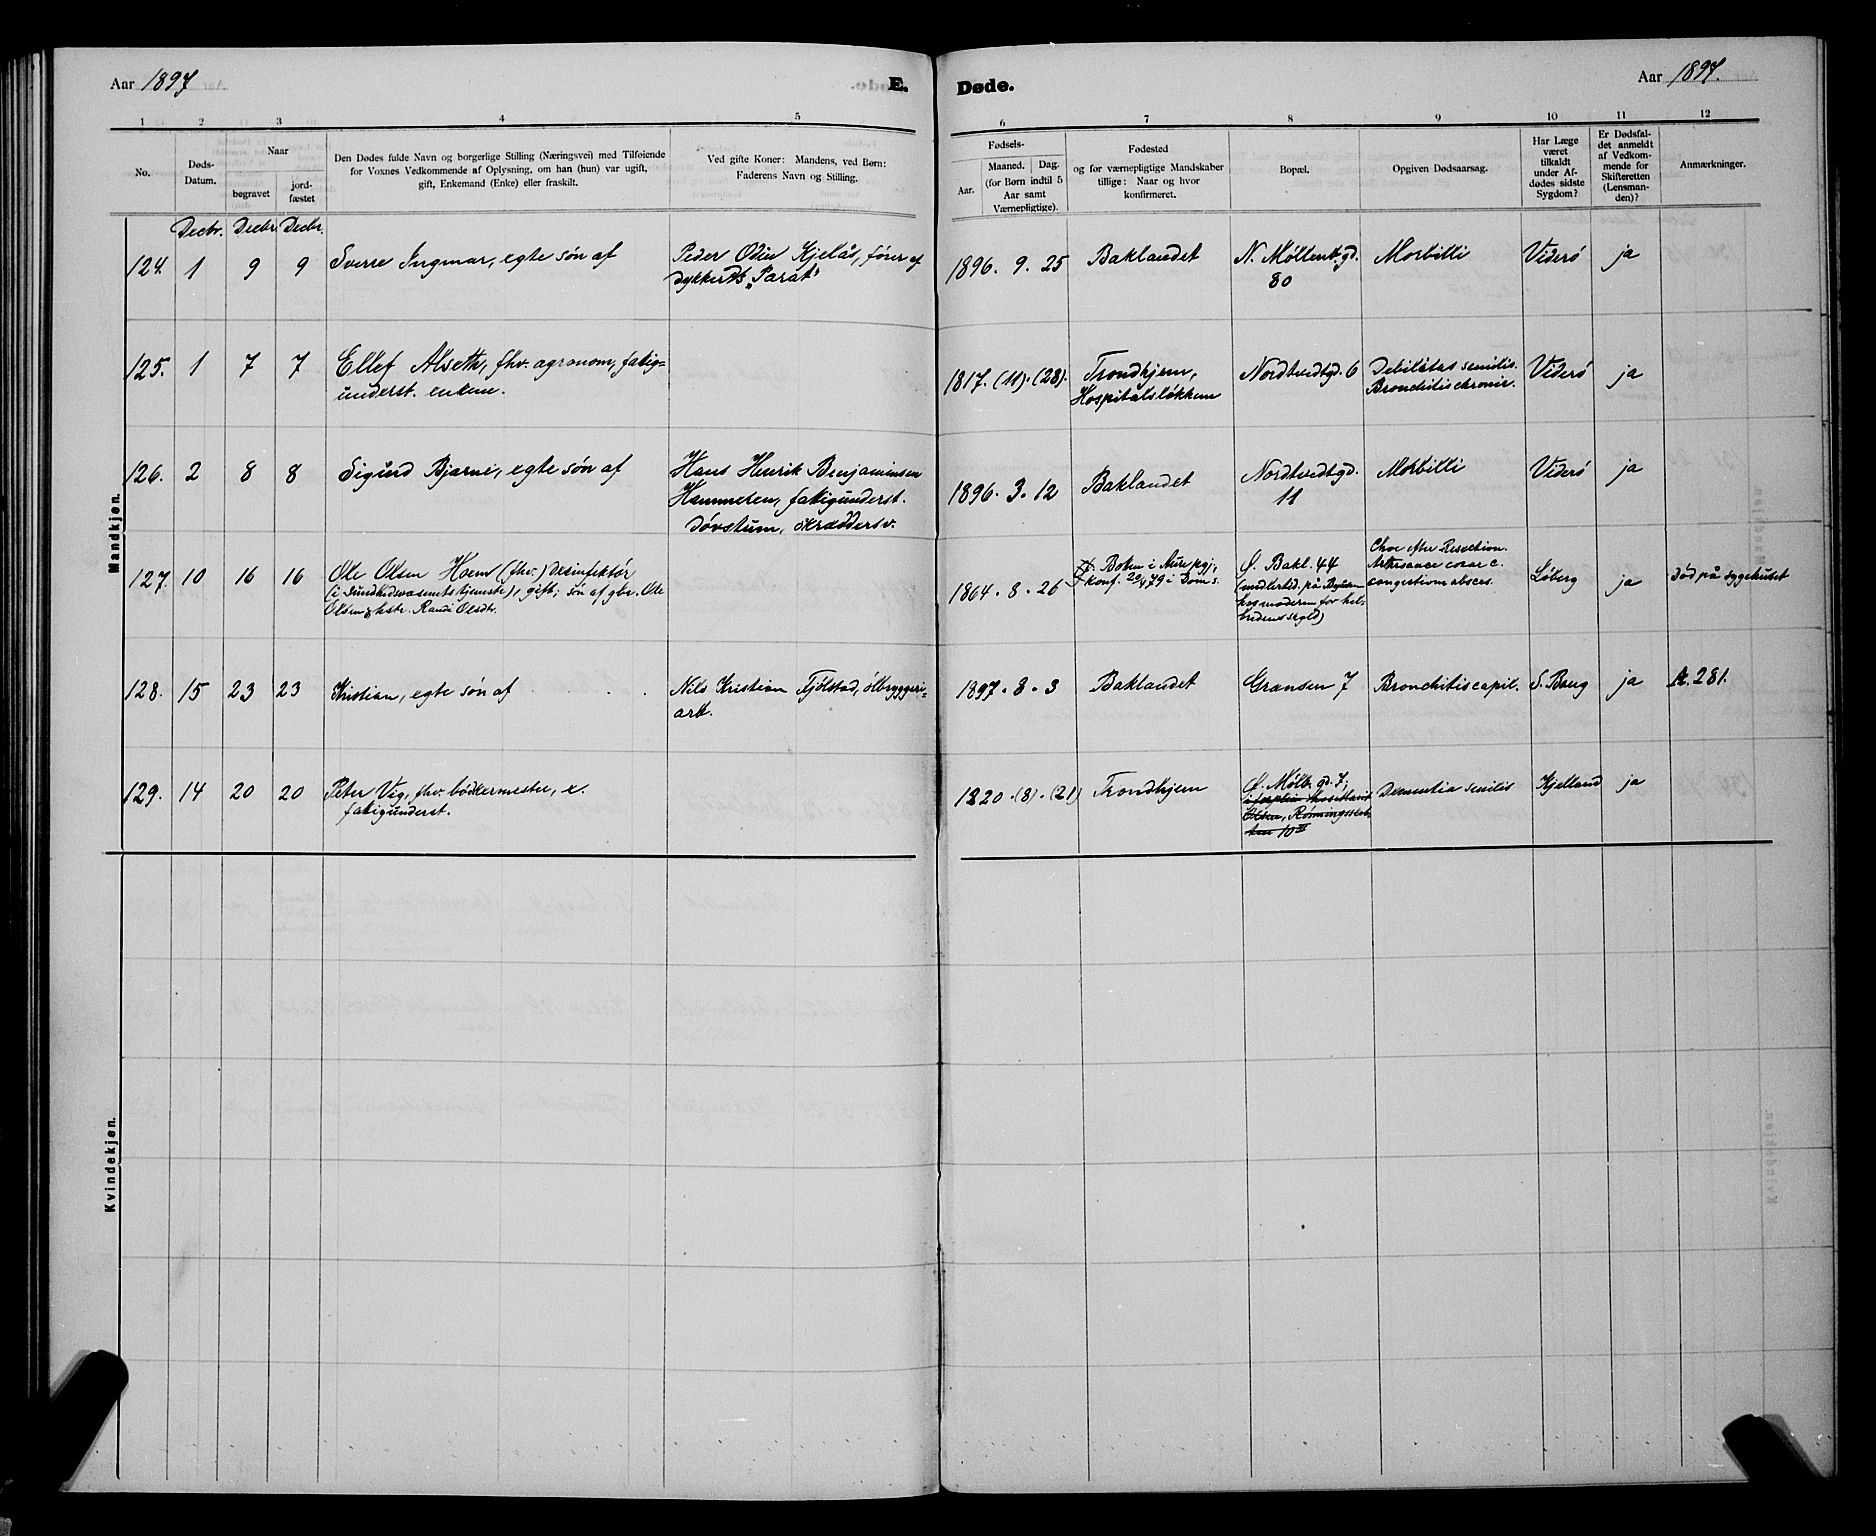 Aar 1897
E.
Døde.
Aar 1897.
1
2
3
4
5
6
7
8
9
10
11
12
No.
Døds-
Datum.
Naar
begravet
jord-
fæstet
Den Dødes fulde Navn og borgerlige Stilling (Næringsvei) med Tilføiende
for Voxnes Vedkommende af Oplysning, om han (hun) var ugift,
gift, Enkemand (Enke) eller fraskilt.
Ved gifte Koner: Mandens, ved Børn:
Faderens Navn og Stilling.
Fødsels-
Aar.
Maaned. Dag.
(for Børn indtil 5
Aar samt
Værnepligtige).
Fødested
og for værnepligtige Mandskaber
tillige: Naar og hvor
konfirmeret.
Bopæl.
Opgiven Dødsaarsag.
Har Læge
været
tilkaldt
under Af-
dødes sidste
Sygdom?
Er Dødsfal-
det anmeldt
af Vedkom-
mende for
Skifteretten
(Lensman-
den)?
Anmærkninger.
Mandkjøn.
Decbr. Decbr. Decbr.
124. 1 9 9 Sverre Ingmar, egte søn af
Peder Odin Kjelås, fører af
dykkerdb. „Parat"
1896. 9. 25 Baklandet
N. Møllenb.gd.
80
Morbilli Viderö ja
125. 1 7 7 Ellef Alseth, fhv. agronom, fatig-
underst. enkem.
1817. (11). (28).
Trondhjem,
Hospitalsløkken
Nordtvedtgd. 6
Debilitas senilis.
Bronchitis chronic.
Viderö ja
126. 2 8 8 Sigurd Bjarne, egte søn af
Hans Henrik Benjaminsen
Hammeren, fatigunderst.
døvstum, skræddersv.
1896. 3. 12 Baklandet
Nordtvedtgd.
11
Morbilli Viderö ja
127. 10 16 16 Ole Olsen Hoem (fhv.) desinfektør
(i sundhedsvæsenets tjeneste), gift; søn af gbr. Ole
Olsen &amp; hstr. Randi Olsdtr.
1864. 8. 26
i Aure pgj.,
konf. 20/4 79 i Dom s.
Ø. Bakl. 44
(midlertid. på
hos moderen for hel-
bredens skyld)
Choc efter Resection.
coxae c.
congestions absces.
Løberg ja død på sygehuset
128. 15 23 23 Kristian, egte søn af . . .
Nils Kristian Fjølstad, ølbryggeri-
arb.
1897. 8. 3 Baklandet Grænsen 7 Bronchitis capil. S. Baug ja A. 281.
129. 14 20 20 Peter Vig, fhv. bødkermester, e.
fatigunderst.
1820. (8). (21) Trondhjem
Ø. Mølb. gd. 7;
10 III
Dementia senilis Kjelland ja
Kvindekjøn.